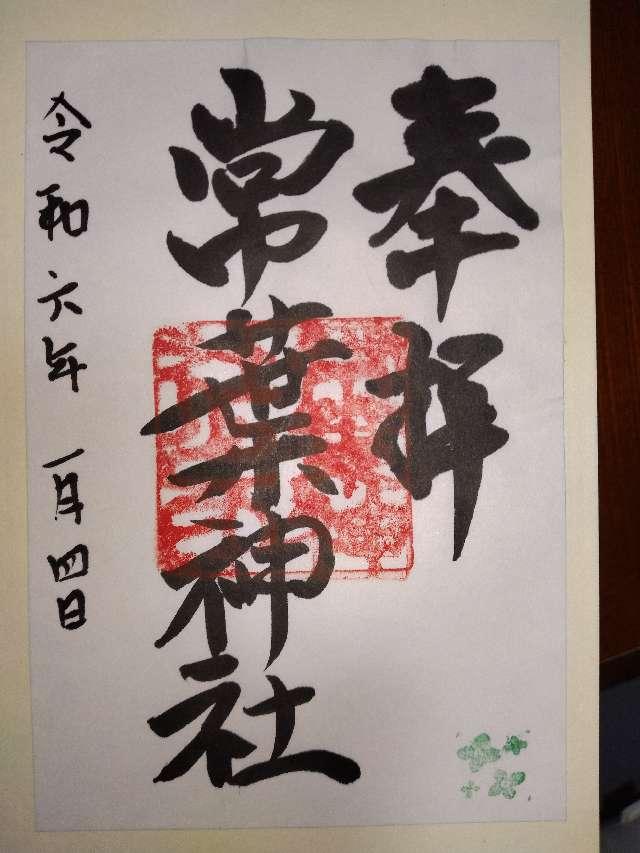 奉拝
常葉神社
令和六年一月四日